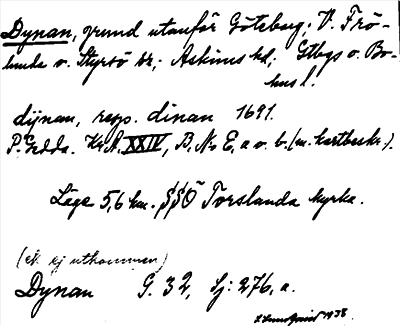 Dynan, grund utanför Göteborg; V. Frö-
lunda o. Styrsö sn; Askims hd; Gtbgs o. Bo-
hus l.
dÿnan, resp. dinan 1691.
P. Gedda. Kr.A. XXIV, B, No E, a o. b. (m. kartbeskr.).
Läge 5,6 km. SSÖ Torslanda kyrka.
(ek. ej utkommen)
Dynan G. 32, Sj: 276, a.
1938